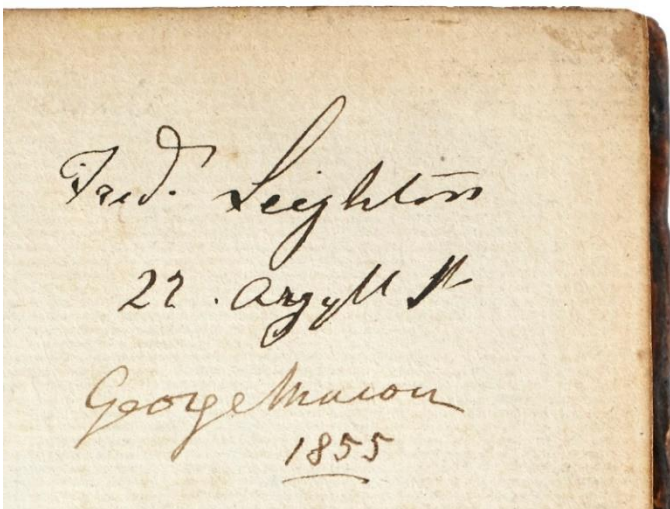 Fred. Leighton
22. Argyll St
George Mason
1855